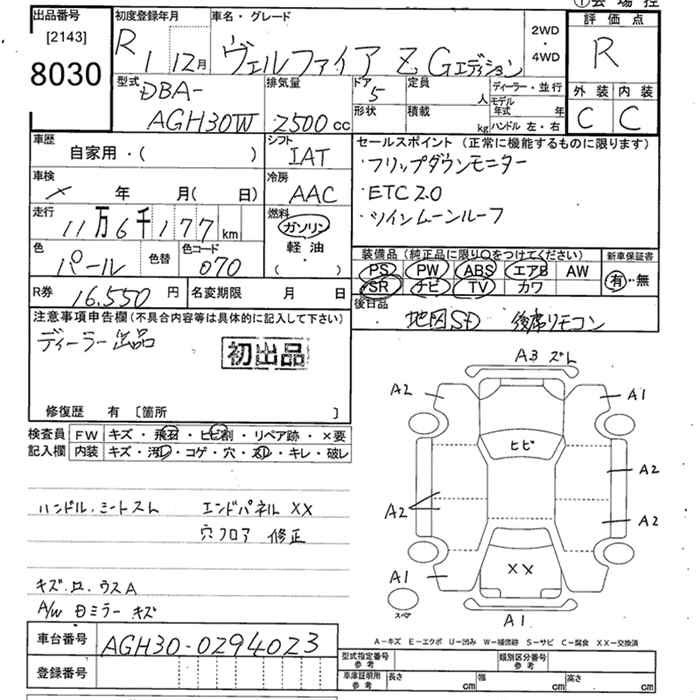 ①会場控
出品番号
[2143]
8030
初度登録年月
R 1 12月
車名・グレード
ヴェルファイア Z Gエディション
2WD
・
4WD
評価点
R
外装 内装
C C
型式
DBA-
AGH30W
排気量
2500cc
ドア
5
形状
定員
人
積載
kg
ディーラー・並行
モデル年式 年
ハンドル 左・右
車歴
自家用・( )
シフト
IAT
セールスポイント (正常に機能するものに限ります)
・フリップダウンモニター
・ETC2.0
・ツインムーンルーフ
車検
年 月( 日)
冷房
AAC
走行
11万6千177km
燃料
ガソリン
軽油
( )
色
パール
色替
色コード
070
装備品 (純正品に限り○をつけてください)
PS PW ABS エアB AW
SR ナビ TV カワ
新車保証書
有・無
R券
16,550円
名変期限 月 日
後日品
地図SD 後席リモコン
注意事項申告欄 (不具合内容等は具体的に記入して下さい)
ディーラー出品
初出品
修復歴 有 〔箇所 〕
検査員
記入欄
FW キズ・飛石・ヒビ割・リペア跡・×要
内装 キズ・汚れ・コゲ・穴・スレ・キレ・破レ
ハンドル・シートスレ エンドパネル XX
穴フロア 修正
キズ・凹・ウスA
A/W ドミラー キズ
A3 ズレ
A2
A1
ヒビ
A2
A2
A2
A1
XX
スペア
A1
A-キズ E-エクボ U-凹み W-補修跡 S-サビ C-腐食 XX-交換済
車台番号
AGH30-0294023
登録番号
型式指定番号
参考
類別区分番号
参考
車庫証明用
参考
長さ cm
幅 cm
高さ cm